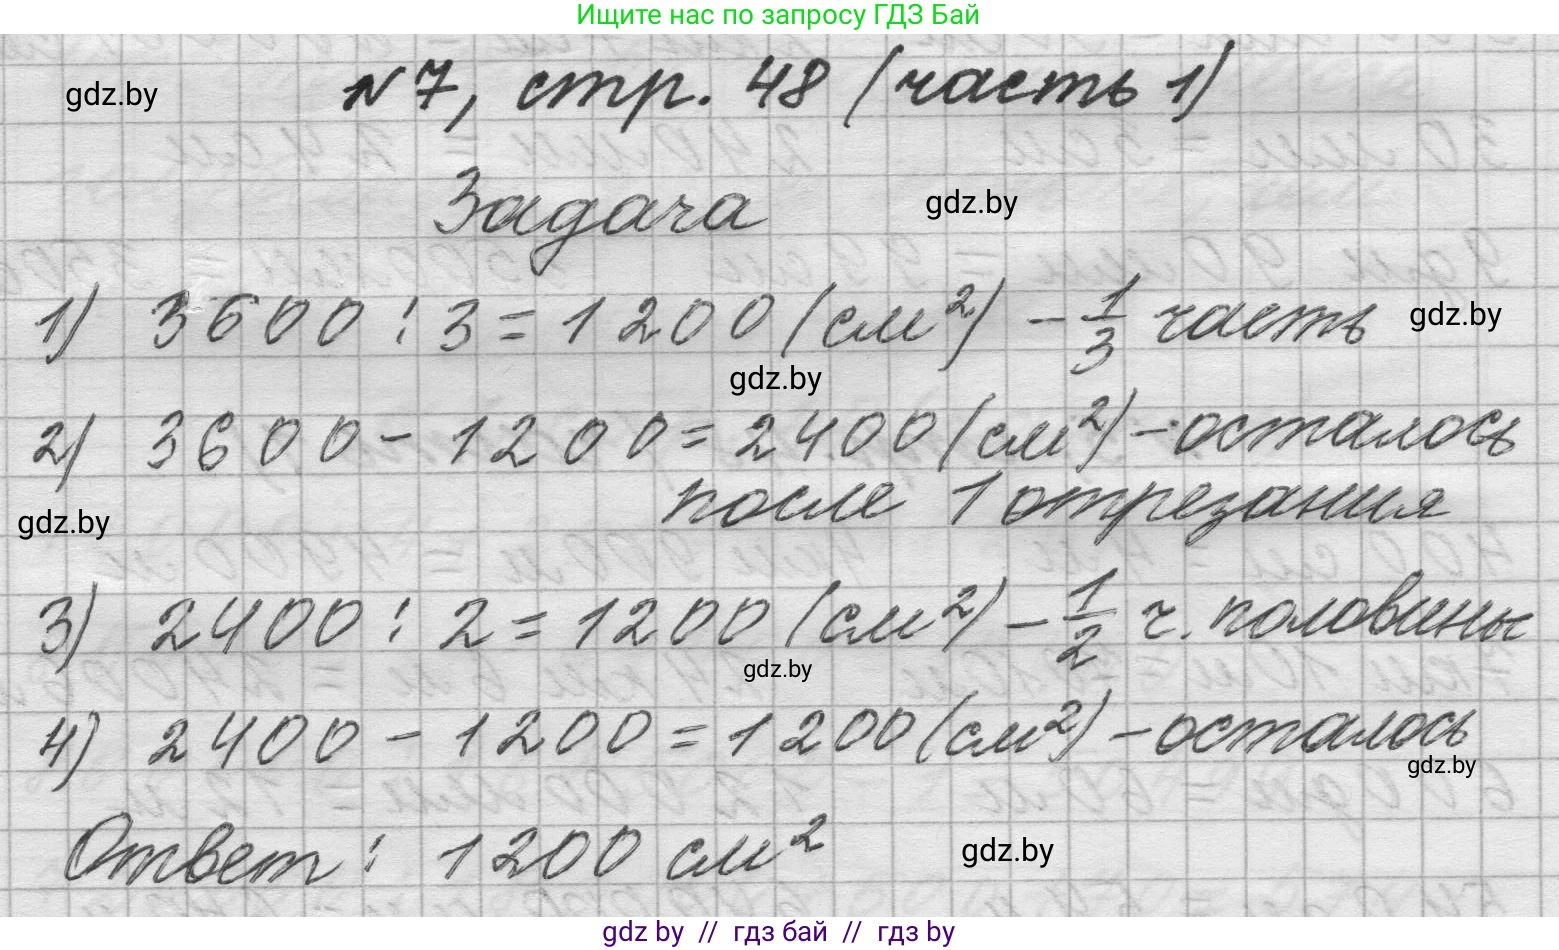 Ищите нас по запросу ГДЗ Бай
gdz.by
№7, стр. 48 (часть 1)
Задача
gdz.by
1) 3600 : 3 = 1200 (см²) - 1/3 часть
gdz.by
gdz.by
2) 3600 - 1200 = 2400 (см²) - осталось
после 1 отрезания
gdz.by
3) 2400 : 2 = 1200 (см²) - 1/2 ч. половины
gdz.by
4) 2400 - 1200 = 1200 (см²) - осталось
gdz.by
Ответ: 1200 см²
gdz.by
gdz by // гдз бай // gdz by